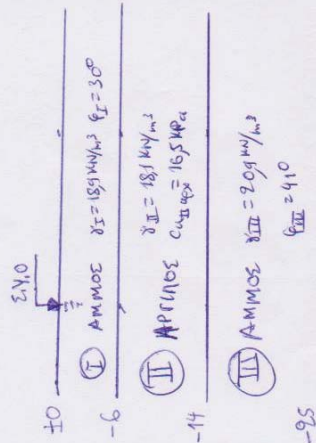 Σ.Υ.Ο
±0
Ⓘ ΑΜΜΟΣ γI = 18,9 KN/m³ φI = 30°
-6
II ΑΡΓΙΛΟΣ γII = 18,1 KN/m³
CuII αρχ = 16,5 KPa
-14
III ΑΜΜΟΣ γIII = 20,9 KN/m³
φIII = 41°
-25